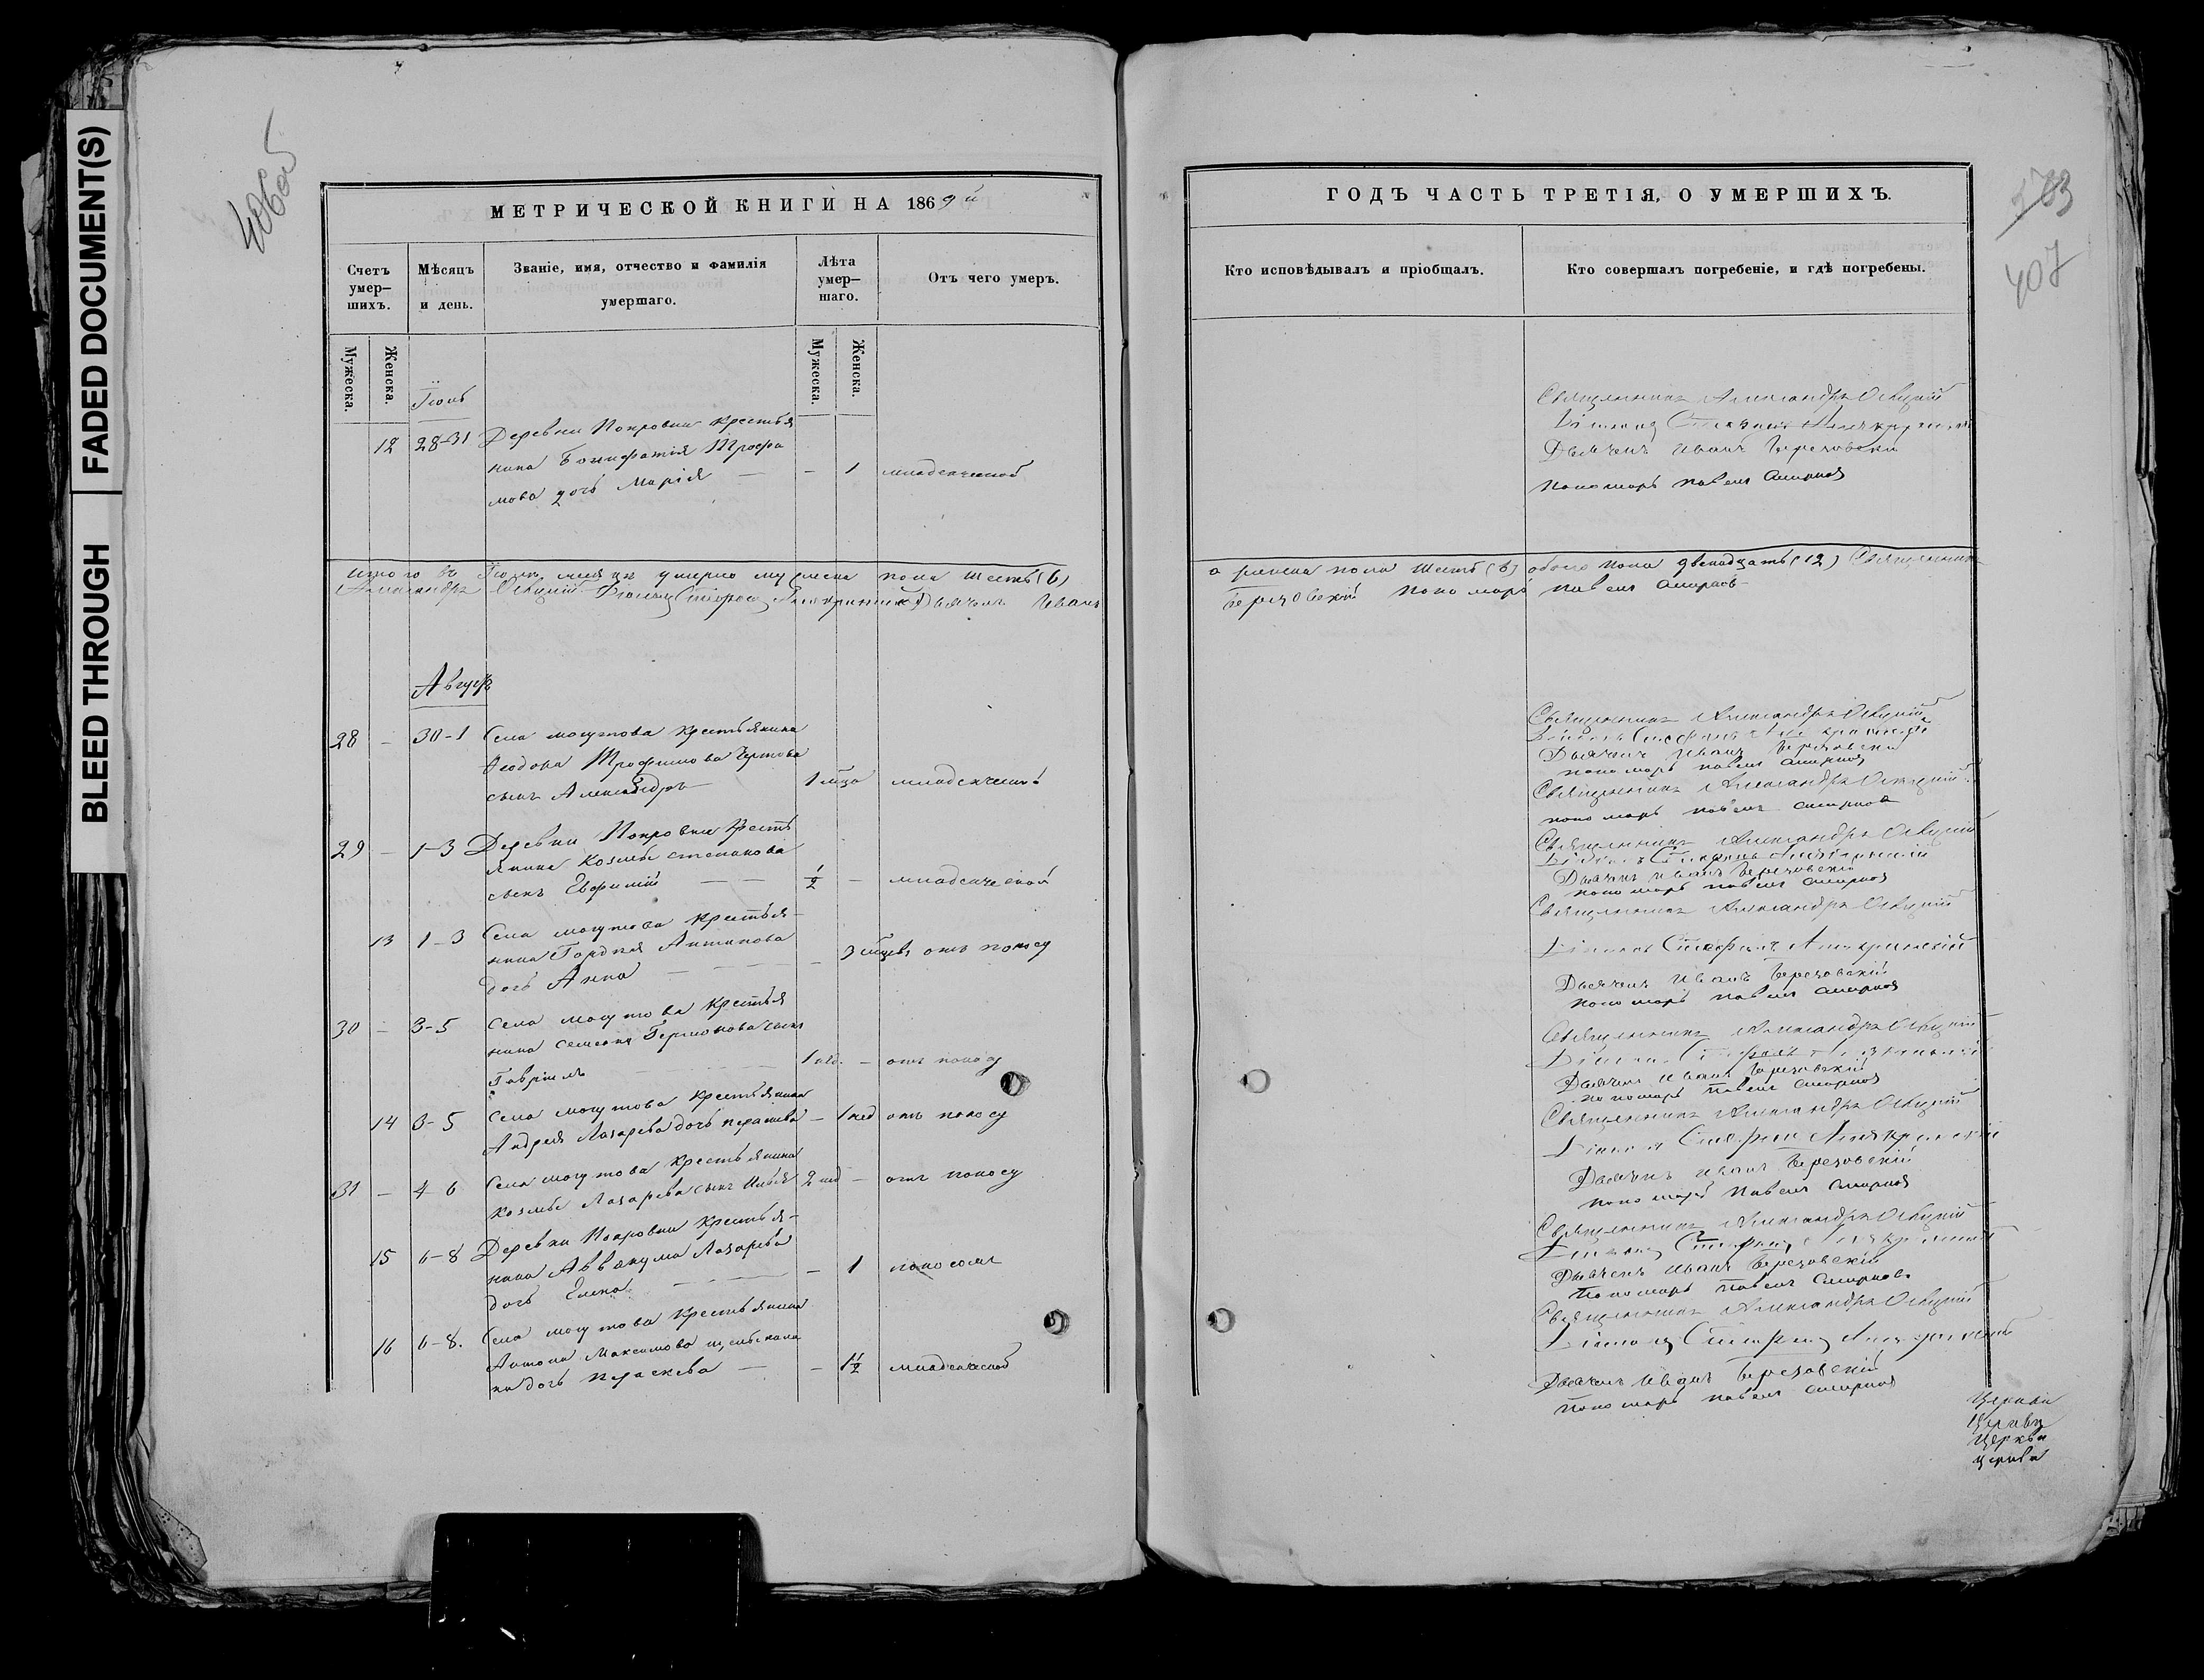 BLEED THROUGH
FADED DOCUMENT(S)
406об
МЕТРИЧЕСКОЙ КНИГИ НА 1869й
Счетъ умер-
шихъ.
Мѣсяцъ
и день.
Званіе, имя, отчество и фамилія
умершаго.
Лѣта
умер-
шаго.
Отъ чего умеръ.
Мужеска.
Женска.
Мужеска.
Женска.
Іюль
12 28-31 Деревни Покровки крестья
нина Бонифатія Трофи
мова дочь Марія — - 1 младенческой
итого въ Іюлѣ месяцѣ умерло мужеска пола шесть (6)
Александръ Діаконъ Дьячекъ Иванъ
Августъ
28 - 30-1 Села могутова крестьянина
Феодора Трофимова
сынъ Александръ 1 мца младенческой
29 - 1-3 Деревни Покровки кресть
янина Козьмы степанова
сынъ Евфимій — — 1/2 — младенческой
13 1-3 Села могутова крестья-
нина Гордея Антипова
дочь Анна — — - 3 мцевъ отъ поносу
30 - 3-5 Села могутова крестья
нина семена сынъ
Гавріилъ 1 нед. - отъ поносу
14 3-5 Села могутова крестьянина
Андрея Лазарева дочь - 1 нед отъ поносу
31 - 4-6 Села могутова крестьянина
Козьмы Лазарева сынъ Илья 2 нед - отъ поносу
15 6-8 Деревни Покровки крестья-
нина Аввакума Лазарева
дочь Елена — - 1 поносомъ
16 6-8. Села могутова крестьянина
Антона Максимова
дочь параскева — - 1 1/2 младенческой
ГОДЪ ЧАСТЬ ТРЕТІЯ, О УМЕРШИХЪ.
407
Кто исповѣдывалъ и пріобщалъ.
Кто совершалъ погребеніе, и гдѣ погребены.
Священникъ Александръ
Діаконъ
Дьячекъ Иванъ Березовскій
Пономарь павелъ Смирновъ
а женска пола шесть (6) обоего пола двенадцать (12) Священникъ
Березовскій Пономарь павелъ Смирновъ
Священникъ Александръ
Діаконъ Стефанъ
Дьячекъ Иванъ Березовскій
пономарь павелъ Смирновъ
Священникъ Александръ
пономарь павелъ Смирновъ
Священникъ Александръ
Діаконъ Стефанъ
Дьячекъ Иванъ Березовскій
пономарь павелъ Смирновъ
Священникъ Александръ
Діаконъ Стефанъ
Дьячекъ Иванъ Березовскій
пономарь павелъ Смирновъ
Священникъ Александръ
Діаконъ Стефанъ
Дьячекъ Иванъ Березовскій
пономарь павелъ Смирновъ
Священникъ Александръ
Діаконъ Стефанъ
Дьячекъ Иванъ Березовскій
пономарь Павелъ Смирновъ
Священникъ Александръ
Діаконъ Стефанъ
Дьячекъ Иванъ Березовскій
Пономарь павелъ Смирновъ
Священникъ Александръ
Діаконъ Стефанъ
Дьячекъ Иванъ Березовскій
пономарь павелъ Смирновъ
Церкви
Церкви
Церкви
Церкви